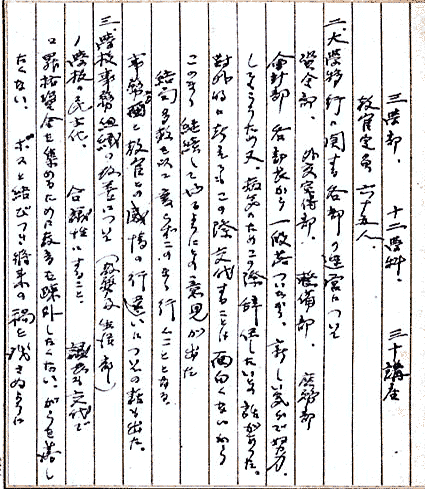 三学部、 十二学科、 三十講座
教官定員 六十五人、
二、大学移行に関する各部の運営について
資金部、 外交宣伝部、 整備部、 庶務部
会計部 各部長から一般若 ついたが、新しい気分で努力
してもらうため又、病気のためこの際辞任したい旨話があった。
対外的に新 てもこの際交代することは面白くないから
このまま継続してやるようにとの意見が出た
結局多数を以て変らずこのまま行くこととなる
事務 と教官との感情の行違いについての話も出た。
三、学校事務組織の改正について(教務及生活部)
1 学校の民主化、 合議性にすること、 議長を交代で
2 昇格資金を集めるために教育を疎外したくない、 を落し
たくない、 ボスと結びついて将来の禍を残さぬように